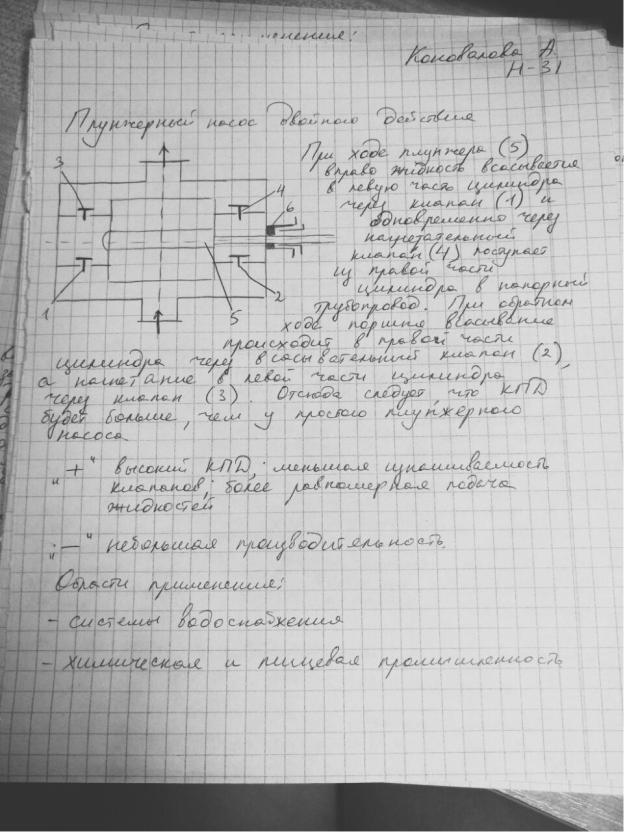 Коновалова А.
Н-31
Плунжерный насос двойного действия
При ходе плунжера (5)
вправо жидкость всасывается
в левую часть цилиндра
через клапан (1) и
одновременно через
нагнетательный
клапан (4) поступает
из правой части
цилиндра в напорный
трубопровод. При обратном
ходе поршня всасывание
происходит в правой части
цилиндра через всасывательный клапан (2),
а нагнетание в левой части цилиндра
через клапан (3). Отсюда следует, что КПД
будет больше, чем у простого плунжерного
насоса
3
4
6
1
5
2
„+“ высокий КПД; меньшая изнашиваемость
клапанов; более равномерная подача
жидкостей
„—“ небольшая производительность.
Области применения:
- системы водоснабжения
- химическая и пищевая промышленность